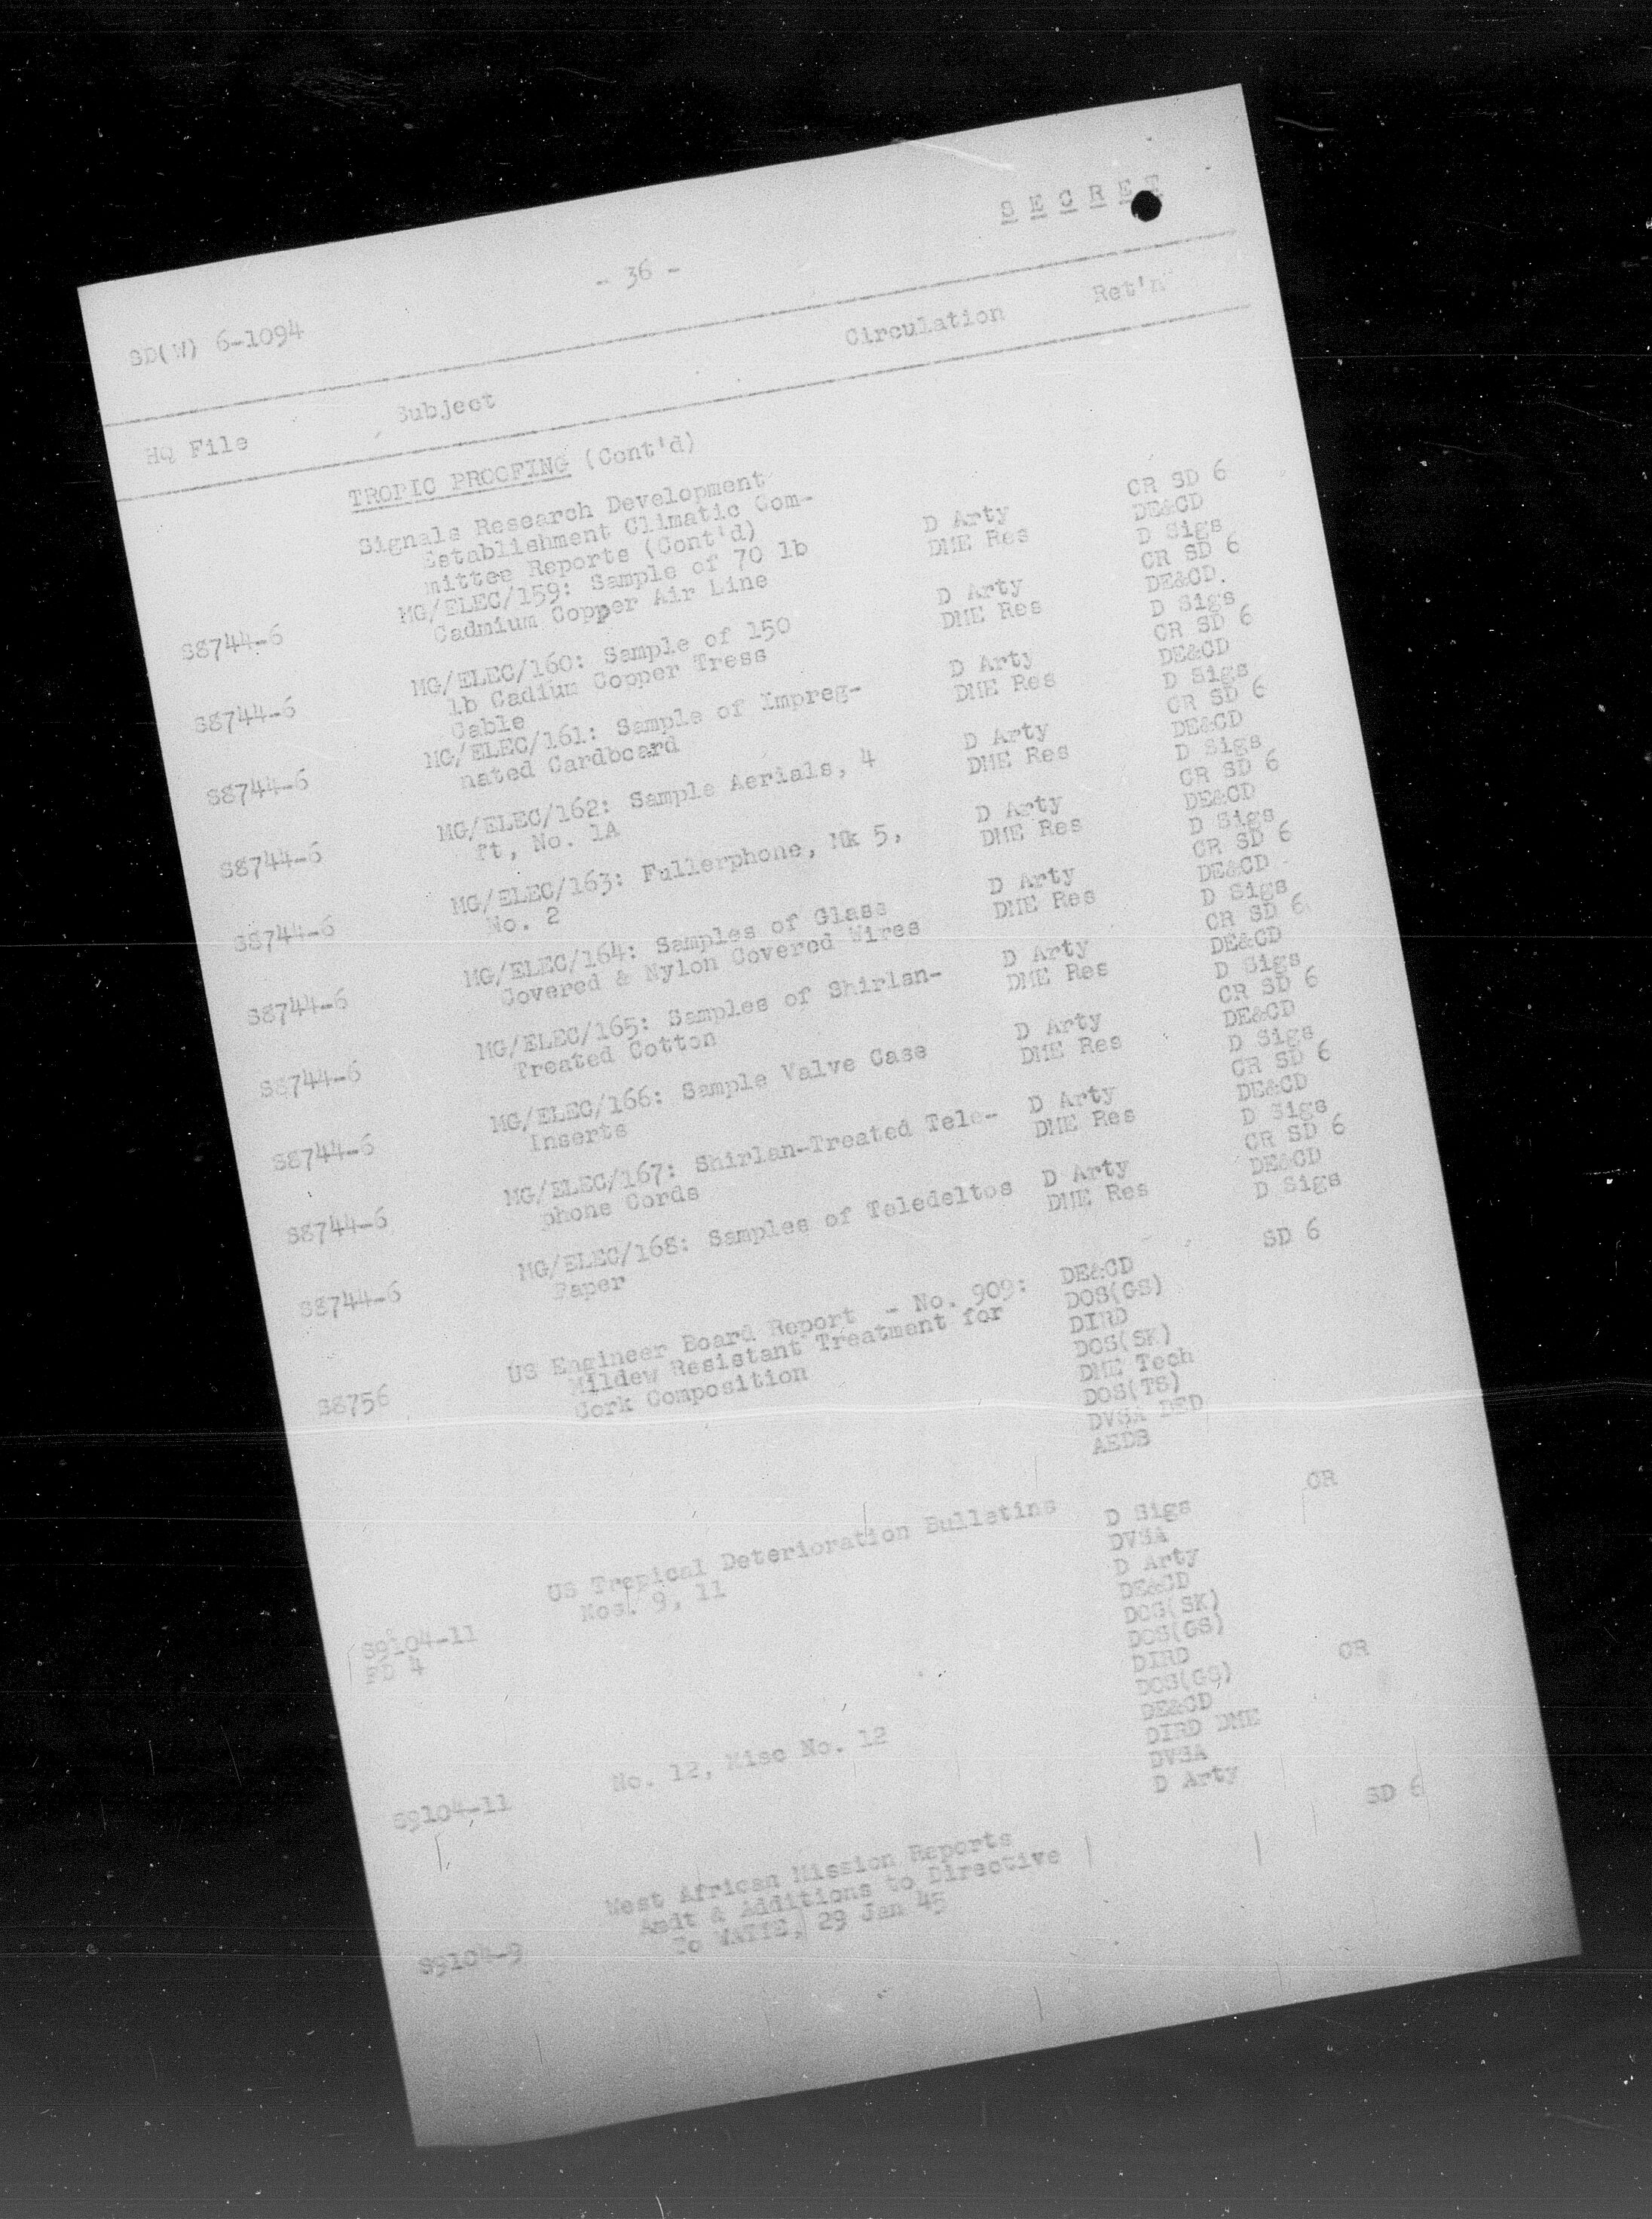 S E C R E T
- 36 -
SD(W) 6-1094
HQ File Subject Circulation Ret'n
TROPIC PROOFING (Cont'd)
Signals Research Development
Establishment Climatic Com-
mittee Reports (Cont'd)
S8744-6 MG/ELEC/159: Sample of 70 lb D Arty CR SD 6
Cadmium Copper Air Line DME Res DE&CD
D Sigs
S8744-6 MG/ELEC/160: Sample of 150 D Arty CR SD 6
lb Cadium Copper Tress DME Res DE&CD.
Cable D Sigs
S8744-6 MG/ELEC/161: Sample of Impreg- D Arty CR SD 6
nated Cardboard DME Res DE&CD
D Sigs
S8744-6 MG/ELEC/162: Sample Aerials, 4 D Arty CR SD 6
ft, No. 1A DME Res DE&CD
D Sigs
S8744-6 MG/ELEC/163: Fullerphone, Mk 5, D Arty CR SD 6
No. 2 DME Res DE&CD
D Sigs
S8744-6 MG/ELEC/164: Samples of Glass D Arty CR SD 6
Covered & Nylon Covered Wires DME Res DE&CD
D Sigs
S8744-6 MG/ELEC/165: Samples of Shirlan- D Arty CR SD 6
Treated Cotton DME Res DE&CD
D Sigs
S8744-6 MG/ELEC/166: Sample Valve Case D Arty CR SD 6
Inserts DME Res DE&CD
D Sigs
S8744-6 MG/ELEC/167: Shirlan-Treated Tele- D Arty CR SD 6
phone Cords DME Res DE&CD
D Sigs
S8744-6 MG/ELEC/168: Samples of Teledeltos D Arty CR SD 6
Paper DME Res DE&CD
D Sigs
S8756 US Engineer Board Report - No. 909: DE&CD SD 6
Mildew Resistant Treatment for DOS(GS)
Cork Composition DIRD
DOS(SK)
DME Tech
DOS(TS)
DVSA DED
AEDB
S9104-11 US Tropical Deterioration Bulletins D Sigs CR
FD 4 Nos. 9, 11 DVSA
D Arty
DE&CD
DOS(SK)
DOS(GS)
DIRD
S9104-11 No. 12, Misc No. 12 DOS(GS) CR
DE&CD
DIRD DME
DVSA
D Arty
S9104-9 West African Mission Reports SD 6
Amdt & Additions to Directive
To WATTE, 29 Jan 45